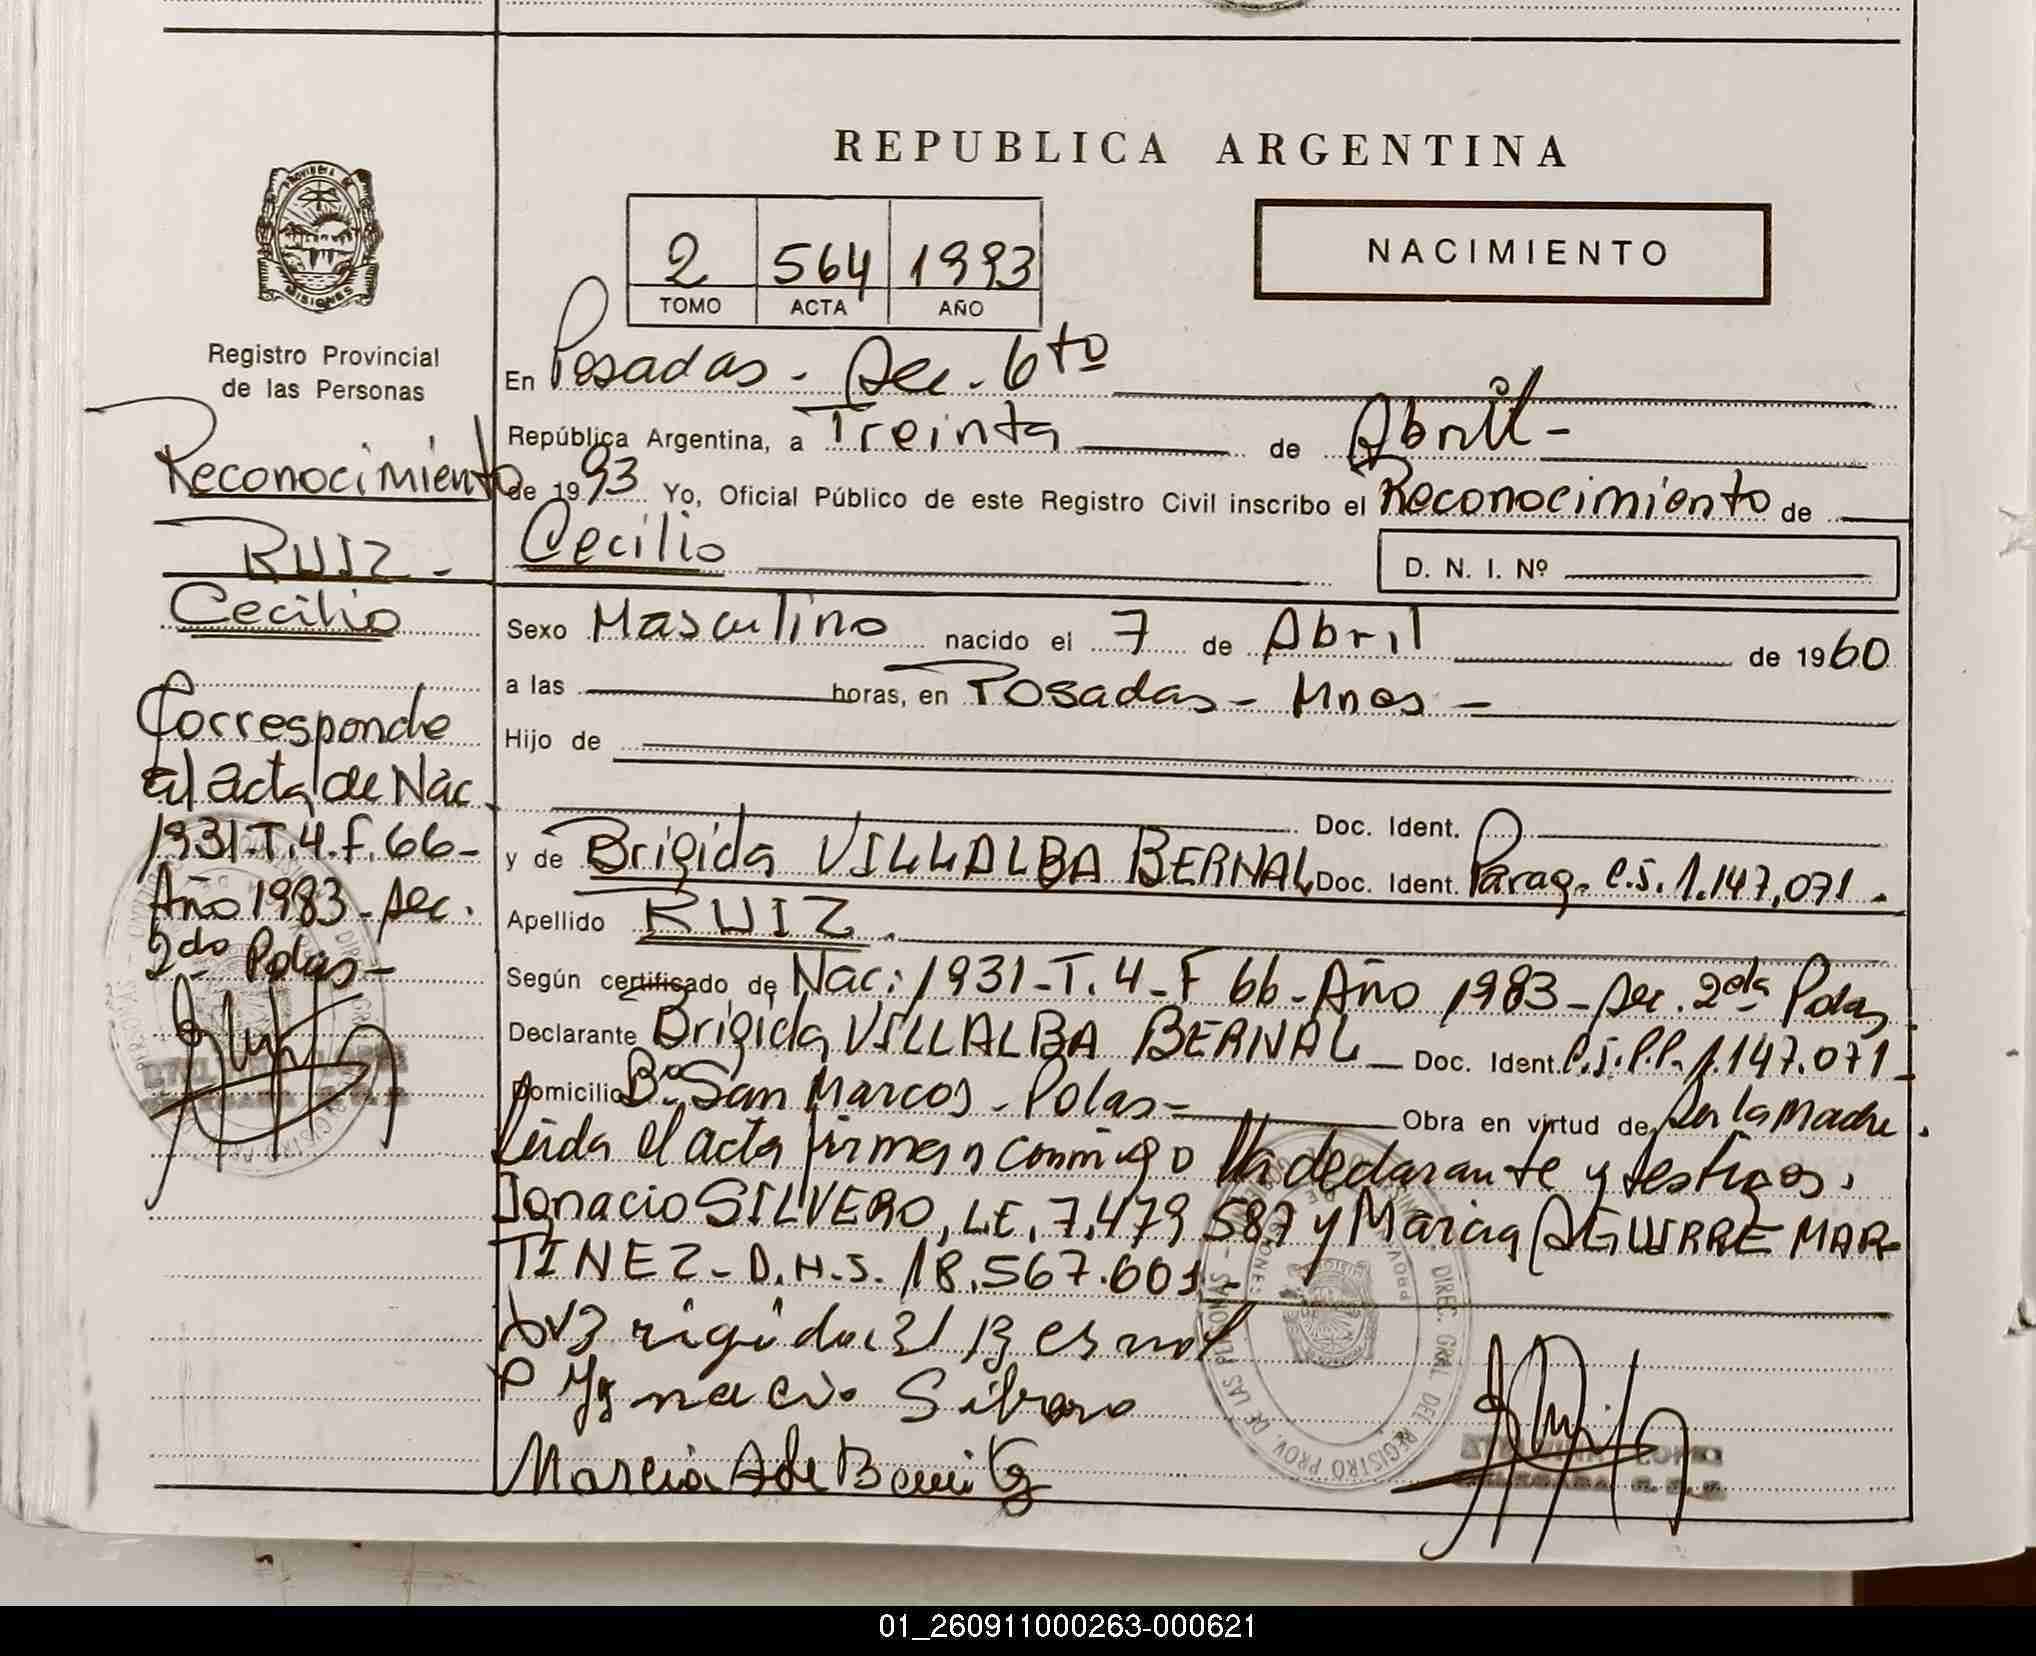 REPUBLICA ARGENTINA
PROVINCIA DE
MISIONES
2 564 1993
TOMO ACTA AÑO
NACIMIENTO
Registro Provincial
de las Personas
Reconocimiento
RUIZ -
Cecilio
Corresponde
al acta de Nac.
1931-T.4.F.66-
Año 1983-Sec.
2do Pdas-
En Posadas - Sec. 6to
República Argentina, a Treinta de Abril -
de 1993 Yo, Oficial Público de este Registro Civil inscribo el Reconocimiento de
Cecilio
D. N. I. Nº
Sexo Masculino nacido el 7 de Abril de 1960
a las horas, en Posadas - Mnes -
Hijo de
Doc. Ident.
y de Brigida VILLALBA BERNAL Doc. Ident. Parag. C.I. 1.147,071.
Apellido RUIZ.
Según certificado de Nac: 1931-T. 4-F 66-Año 1983-Sec. 2da Pdas
Declarante Brigida VILLALBA BERNAL - Doc. Ident. C.I.P.P. 1.147.071-
Domicilio Bº San Marcos - Pdas - Obra en virtud de Ser la Madre.
Leida el acta firman conmigo la declarante y testigos.
Ignacio SILVERO, L.E. 7.479 587 y Marcia AGUIRRE MAR-
TINEZ - D.N.I. 18.567.601-
Ygnacio Silvero
Marcia A de Benitez
DIREC. GRAL. DEL REGISTRO PROV. DE LAS PERSONAS
01_260911000263-000621